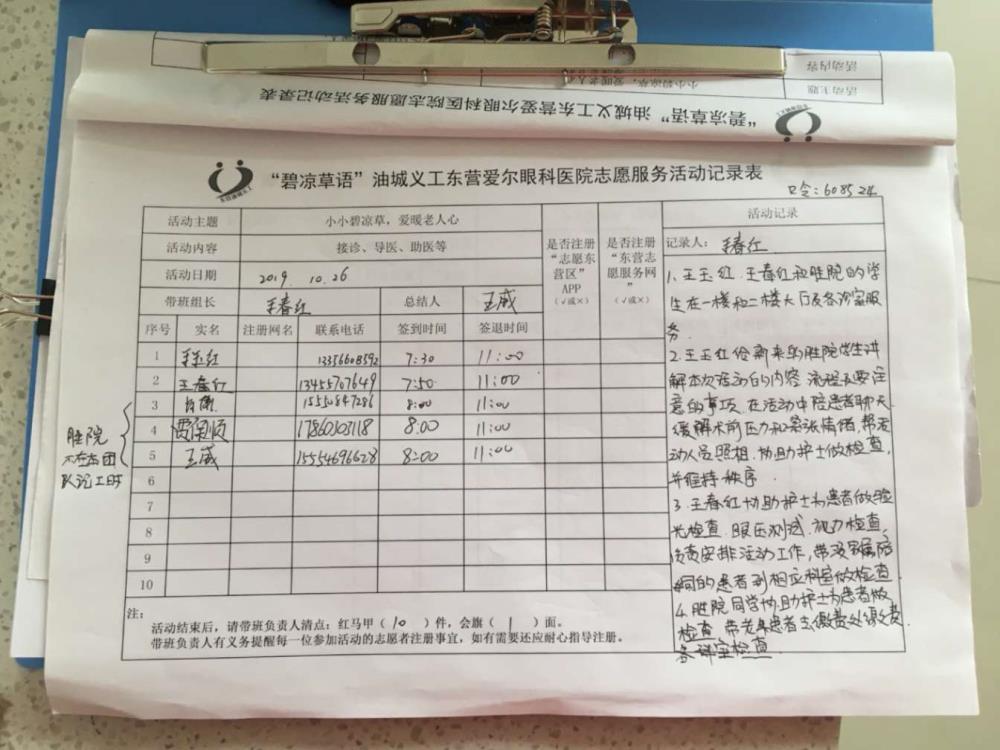 活动内容
活动主题
小小碧凉草，爱暖老人心
“碧凉草语”油城义工东营爱尔眼科医院志愿服务活动记录表
“碧凉草语”油城义工东营爱尔眼科医院志愿服务活动记录表
口令：608524
活动主题 小小碧凉草，爱暖老人心
活动内容 接诊、导医、助医等
活动日期 2019 10.26
带班组长 王春红 总结人 王威
是否注册“志愿东营区”APP（√或×）
是否注册“东营志愿服务网”（√或×）
序号 实名 注册网名 联系电话 签到时间 签退时间
1 王玉红 13356608592 7:30 11:00
2 王春红 13455707649 7:50 11:00
3 15550847286 8:00 11:00
4 17860303118 8:00 11:00
5 王威 15554696628 8:00 11:00
6
7
8
9
10
胜院
不在本团
队记工时
注：
活动结束后，请带班负责人清点：红马甲（10）件，会旗（1）面。
带班负责人有义务提醒每一位参加活动的志愿者注册事宜，如有需要还应耐心指导注册。
活动记录
记录人：王春红
1、王玉红、王春红和胜院的学
生在一楼和二楼大厅及各诊室服
务。
2、王玉红给新来的胜院学生讲
解本次活动的内容 流程及要注
意的事项、在活动中陪患者聊天
缓解术前压力和紧张情绪、帮活
动人员照相、协助护士做检查，
并维持秩序。
3、王春红协助护士为患者做验
光检查、眼压测试、视力检查，
负责安排活动工作，带没家属陪
同的患者到相应科室做检查
4、胜院同学协助护士为患者做
检查、带老年患者去缴费处缴费、
各诊室检查。